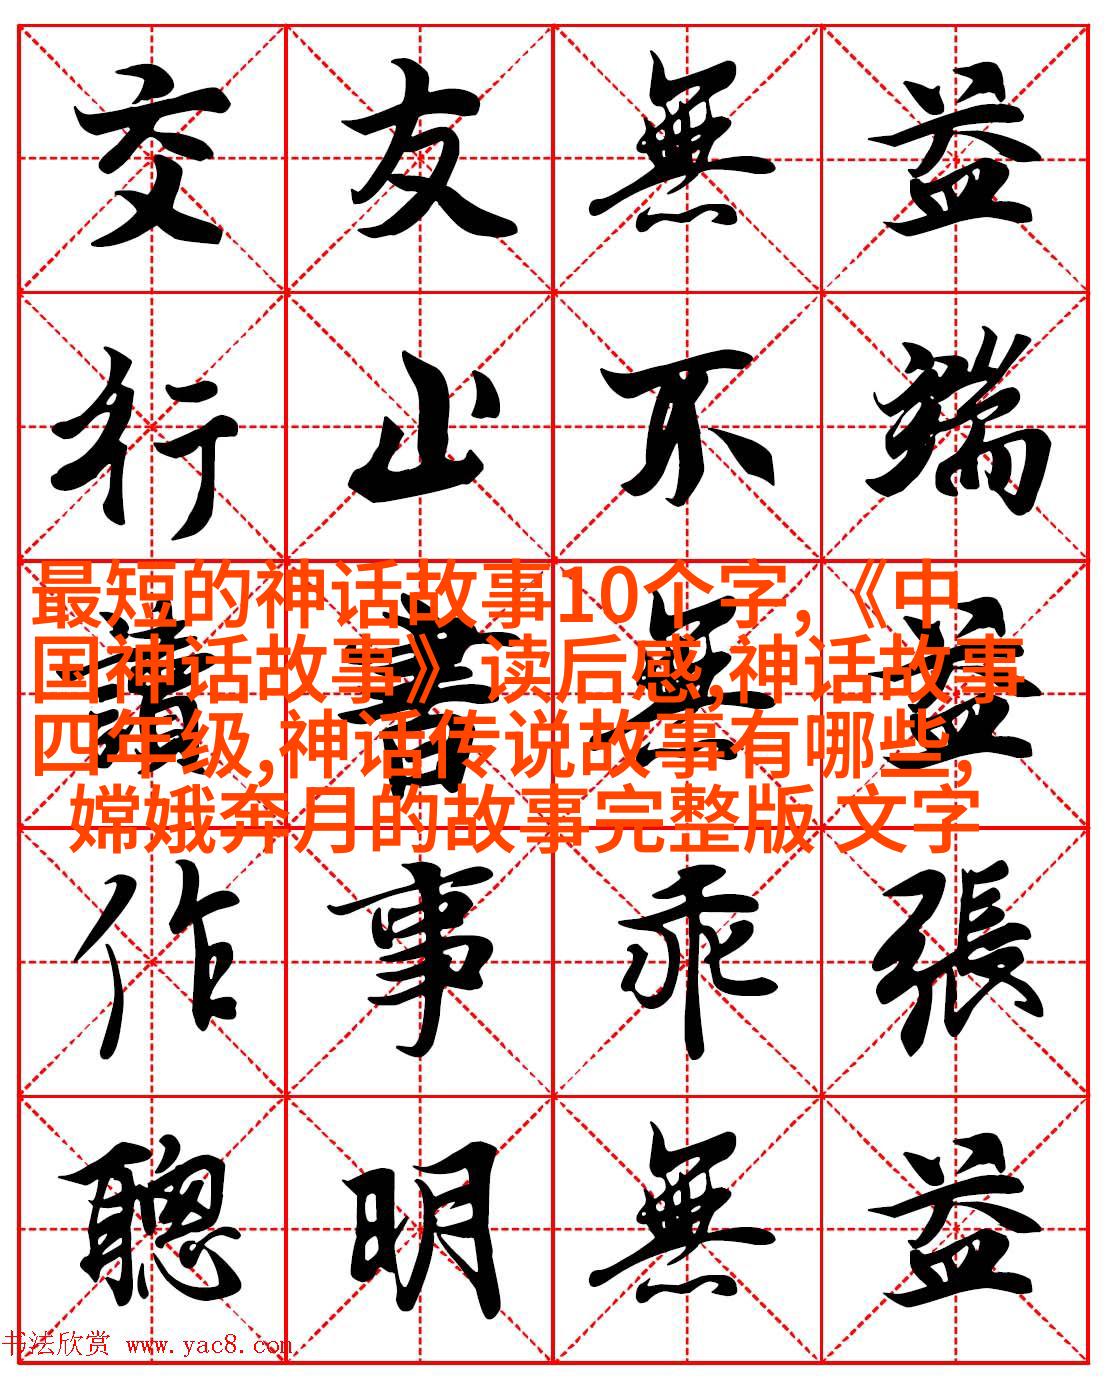 交友無益
行止不端
讀書無益
最短的神话故事10个字,《中
国神话故事》读后感,神话故事
四年级,神话传说故事有哪些,
嫦娥奔月的故事完整版 文字
作事乖張
聰明無益
书法欣赏 www.yac8.com